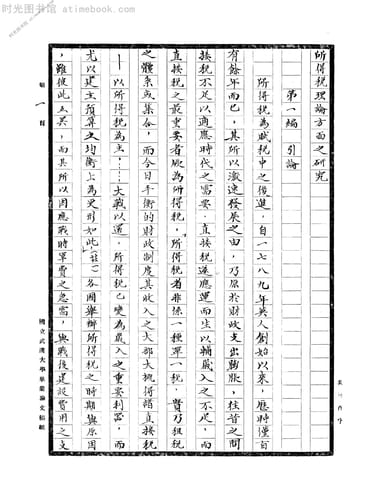 时光图书馆 - atimebook.com
所得税理論方面之研究
第一編 引論
所得税為賦税中之後進，自一七八九年英人創始以來，歷時僅百
有餘年而已，其所以激速發展之由，乃原於財政支出膨脹，往昔之間
接税不足以適應時代之需要，直接税遂應運而生以輔歲入之不足，而
直接税之最重要者厥為所得税，所得税者非係一種單一税，實乃租税
之體系或集合，而今日平衡的財政制度其收入之大部大概得諸直接税
——以所得税為主……大戰以還，所得税已變為歲入之重要利器，而
尤以建立預算之均衡上為更形如此（註一）各國舉辦所得税之時期與原因
，雖彼此互異，而其所以因應戰時軍費之急需，與戰後建設費用之支
第一頁
國立武漢大學畢業論文稿紙